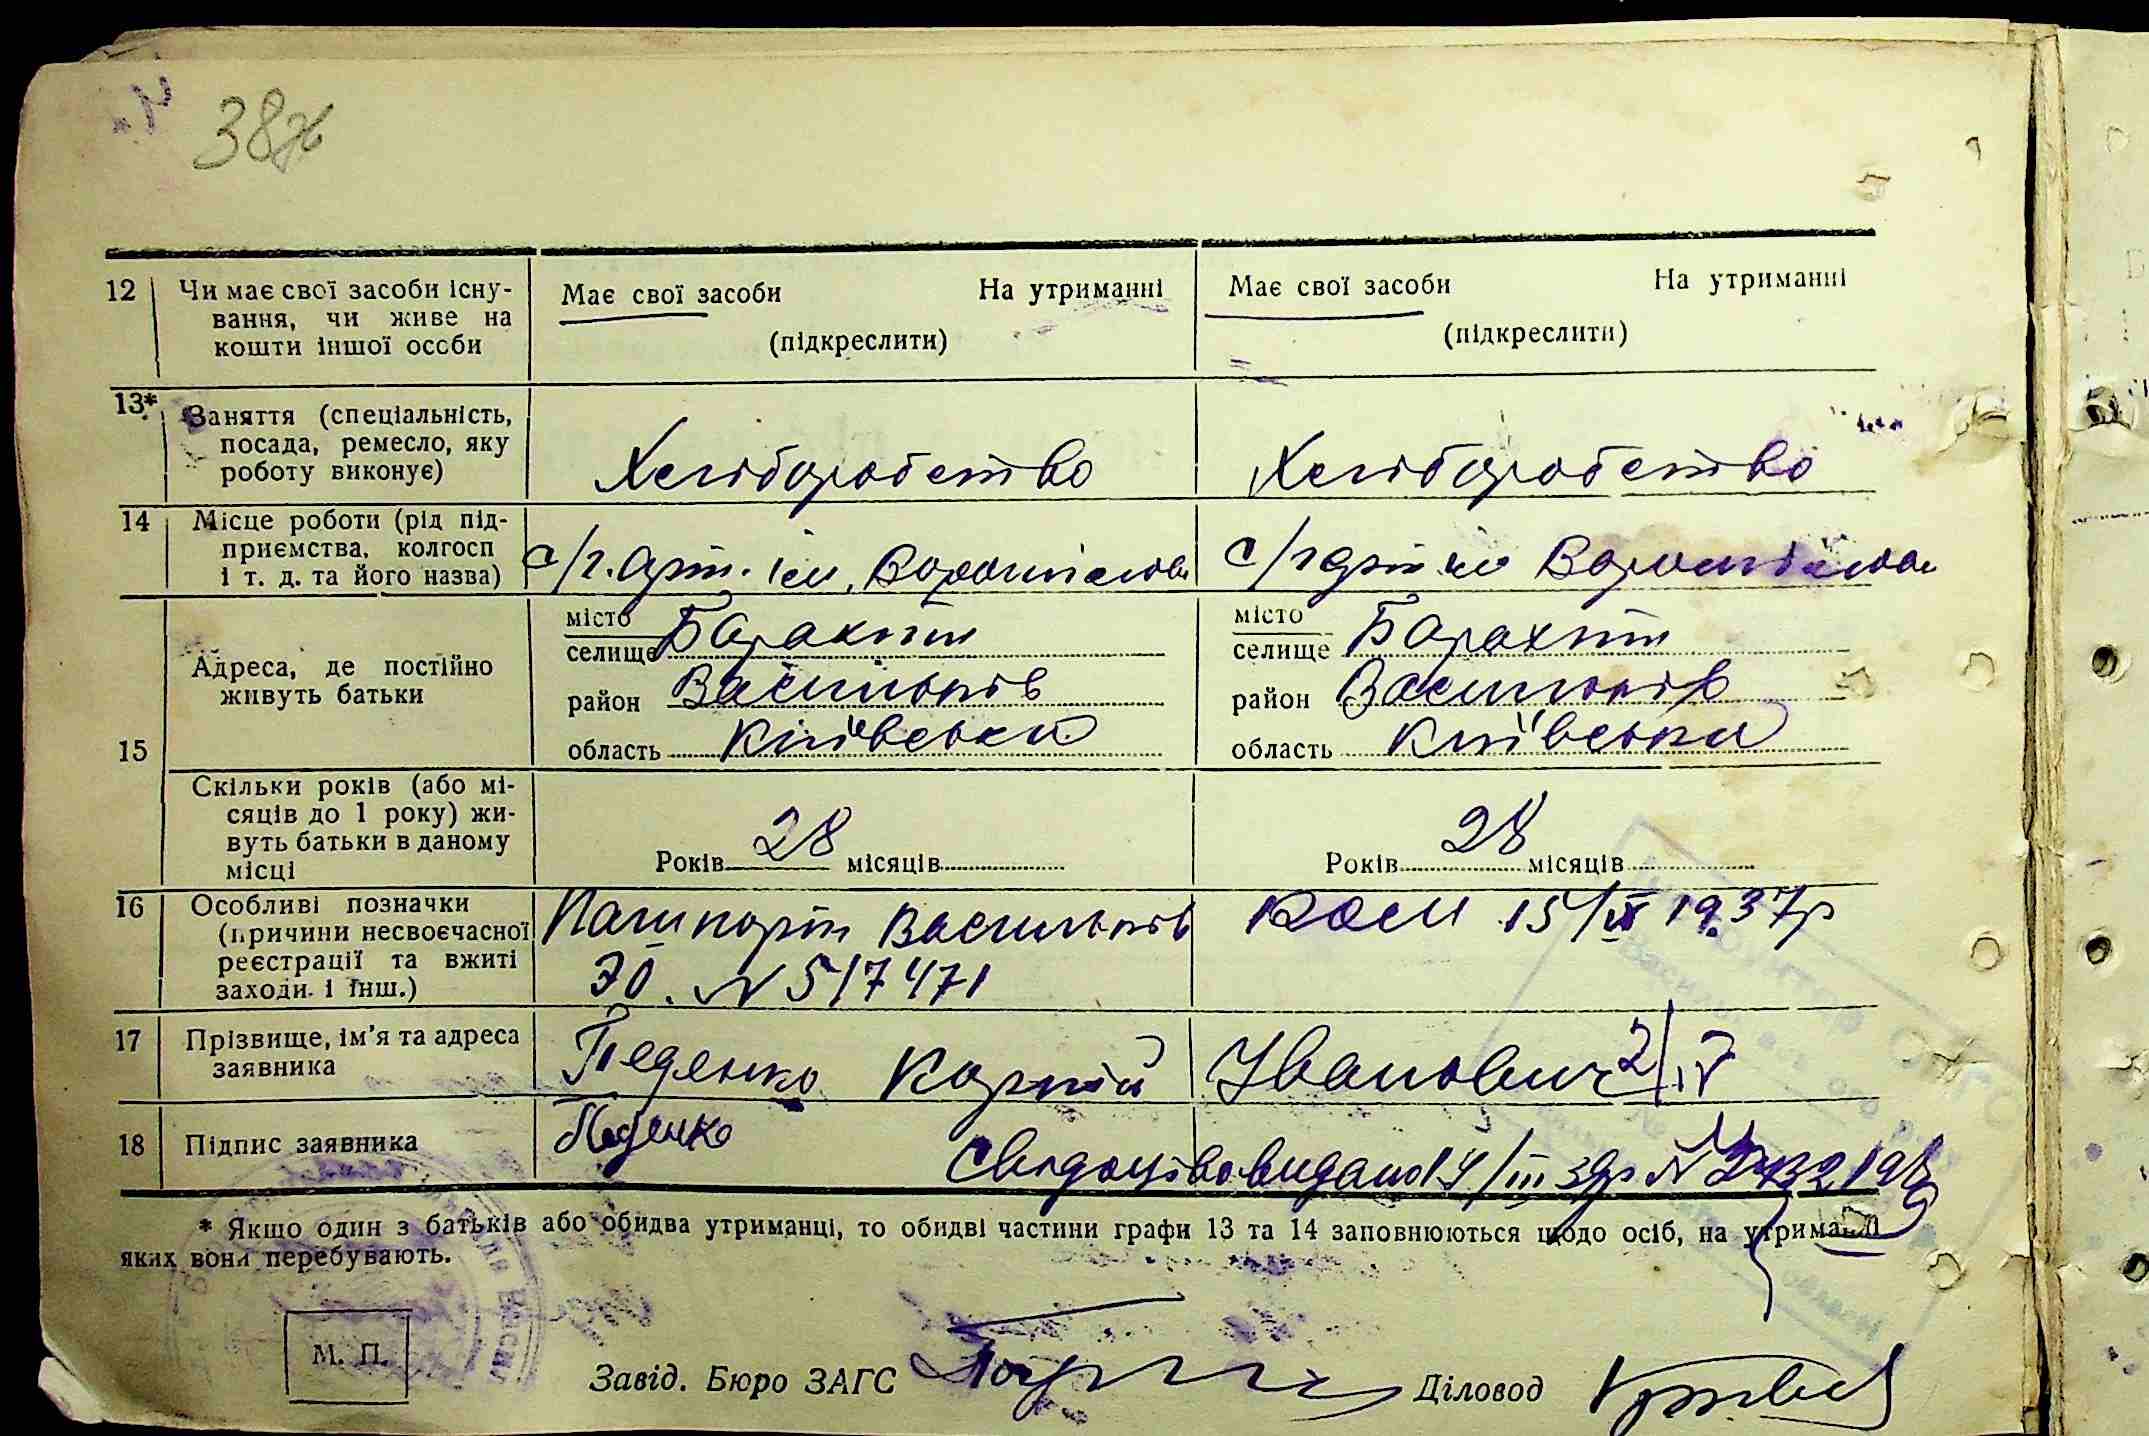 38
12 Чи має свої засоби існу-
вання, чи живе на
кошти іншої особи
Має свої засоби На утриманні
(підкреслити)
Має свої засоби На утриманні
(підкреслити)
13* Заняття (спеціальність,
посада, ремесло, яку
роботу виконує)
Хліборобство
Хліборобство
14 Місце роботи (рід під-
приємства, колгосп
і т. д. та його назва)
с/г. арт. ім. Ворошилова
с/г арт ім Ворошилова
15
Адреса, де постійно
живуть батьки
місто
селище Барахти
район Васильків
область Київська
місто
селище Барахти
район Васильків
область Київська
Скільки років (або мі-
сяців до 1 року) жи-
вуть батьки в даному
місці
Років 28 місяців
Років 28 місяців
16 Особливі позначки
(причини несвоєчасної
реєстрації та вжиті
заходи і інш.)
Пашпорт Васильків РОСМ 15/IX 1937р
ЭО. N 517471
17 Прізвище, ім'я та адреса
заявника
Педенко Корній Іванович 2/IV
18 Підпис заявника
Педенко
Свидоцтво видано 14/III 39р N
* Якщо один з батьків або обидва утриманці, то обидві частини графи 13 та 14 заповнюються щодо осіб, на утриманні
яких вони перебувають.
М. П.
Завід. Бюро ЗАГС
Діловод